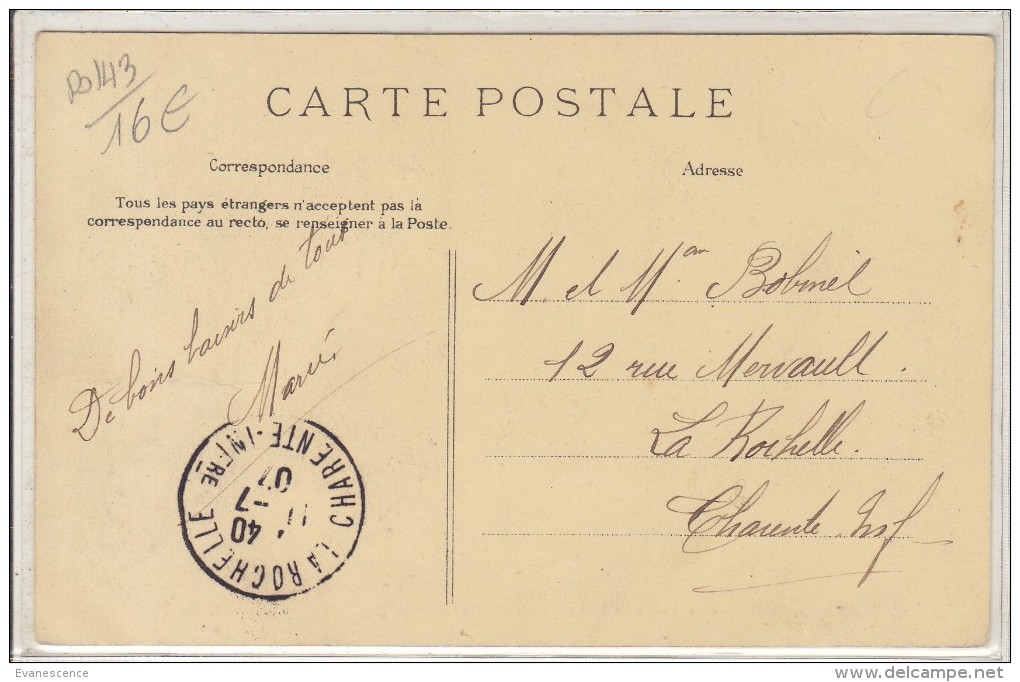 16€
CARTE POSTALE
Correspondance
Adresse
Tous les pays étrangers n'acceptent pas là
correspondance au recto, se renseigner à la Poste.
De bons baisirs de tous
Marie.
M. et Mme Bobinel
12 rue Mervault.
La Rochelle.
Charente Inf
LA ROCHELLE
CHARENTE-INFRE
40
-7
07
Evanescence
www.delcampe.net